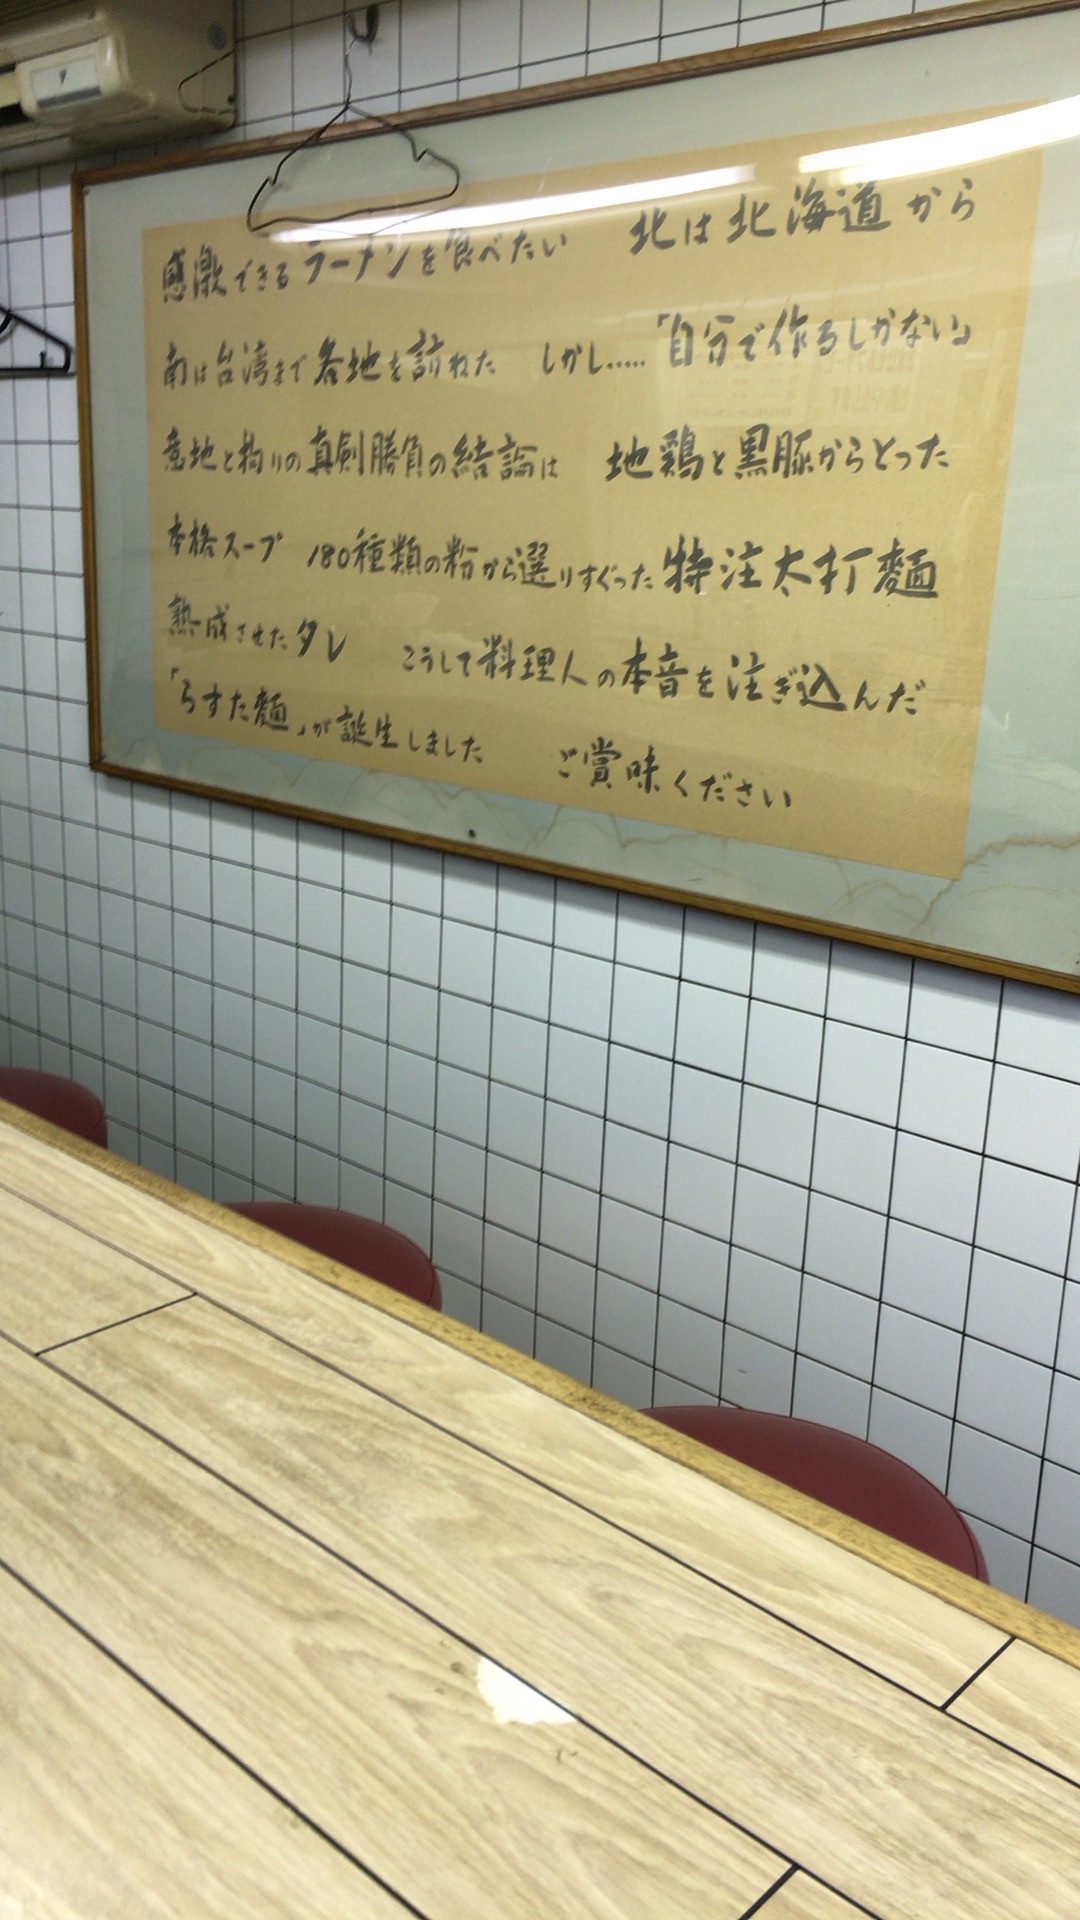 感激できるラーメンを食べたい　北は北海道から
南は台湾まで各地を訪ねた　しかし.....「自分で作るしかない」
意地と拘りの真剣勝負の結論は　地鶏と黒豚からとった
本格スープ　180種類の粉から選りすぐった特注太打麺
熟成させたタレ　こうして料理人の本音を注ぎ込んだ
「らすた麺」が誕生しました　ご賞味ください